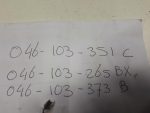 046-103-351 C
046-103-265 BX
046-103-373 B